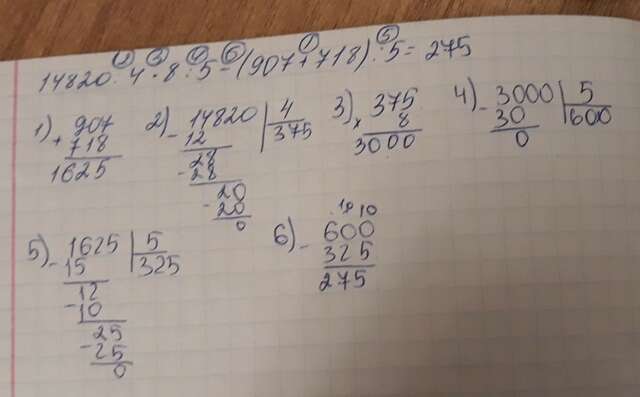 14820 : 4 · 8 : 5 - (907 + 718) : 5 = 275
2 3 4 6 1 5
1) 907
+ 718
1625
2) 14820 | 4
- 12 375
28
- 28
20
- 20
0
3) 375
× 8
3000
4) - 3000 | 5
30 600
0
5) - 1625 | 5
15 325
12
- 10
25
- 25
0
6) .10 10
- 600
325
275